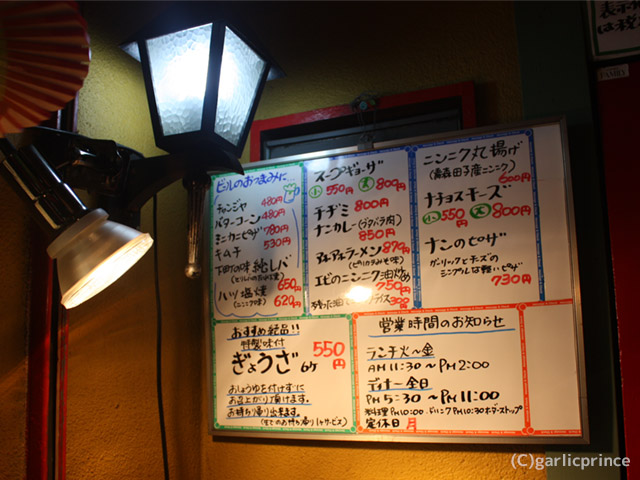 ビールのおつまみに…
チャンジャ 480円
バターコーン 480円
ミニカニピザ 780円
キムチ 530円
純レバ 650円
ハツ塩焼 620円
(ニンニク味)
スープギョーザ
小 550円 大 800円
チヂミ 800円
ナンカレー(ブタバラ肉)
850円
ラーメン 870円
(ピリカラみそ味)
エビのニンニク油炒め
750円
ニンニク丸揚げ
(青森田子産ニンニク)
600円
ナチョスチーズ
小 550円 大 800円
ナンのピザ
ガーリックとチーズの
シンプルな軽いピザ
730円
おすすめ絶品!!
特製味付
ぎょうざ 6ヶ 550円
おしょうゆを付けずに
お召上がり頂けます。
お持ち帰り出来ます。
営業時間のお知らせ
ランチ 火〜金
AM 11:30 〜 PM 2:00
ディナー 全日
PM 5:30 〜 PM 11:00
料理 PM 10:00 ドリンク PM 10:30 オーダーストップ
定休日 月
(C)garlicprince